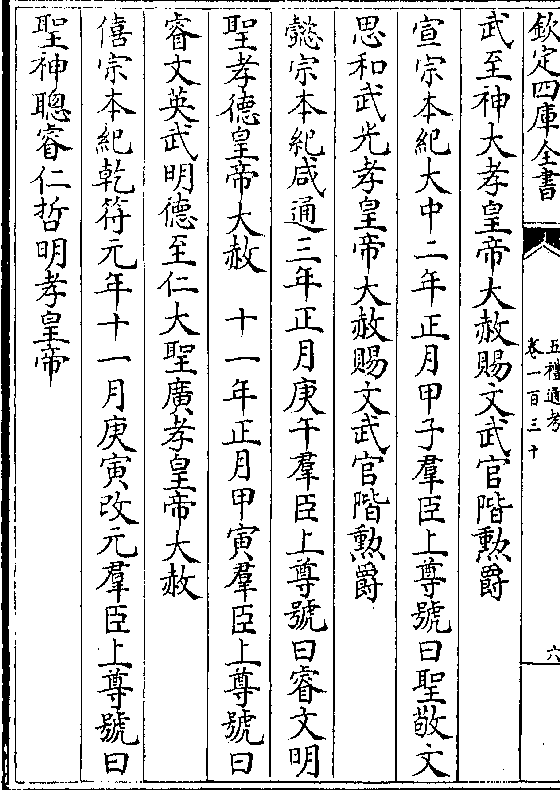 欽定四庫全書
五禮通考
卷一百三十
六
武至神大孝皇帝大赦賜文武官階勲爵
宣宗本紀大中二年正月甲子羣臣上尊號曰聖敬文
思和武光孝皇帝大赦賜文武官階勲爵
懿宗本紀咸通三年正月庚午羣臣上尊號曰睿文明
聖孝德皇帝大赦　十一年正月甲寅羣臣上尊號曰
睿文英武明德至仁大聖廣孝皇帝大赦
僖宗本紀乾符元年十一月庚寅改元羣臣上尊號曰
聖神聰睿仁哲明孝皇帝